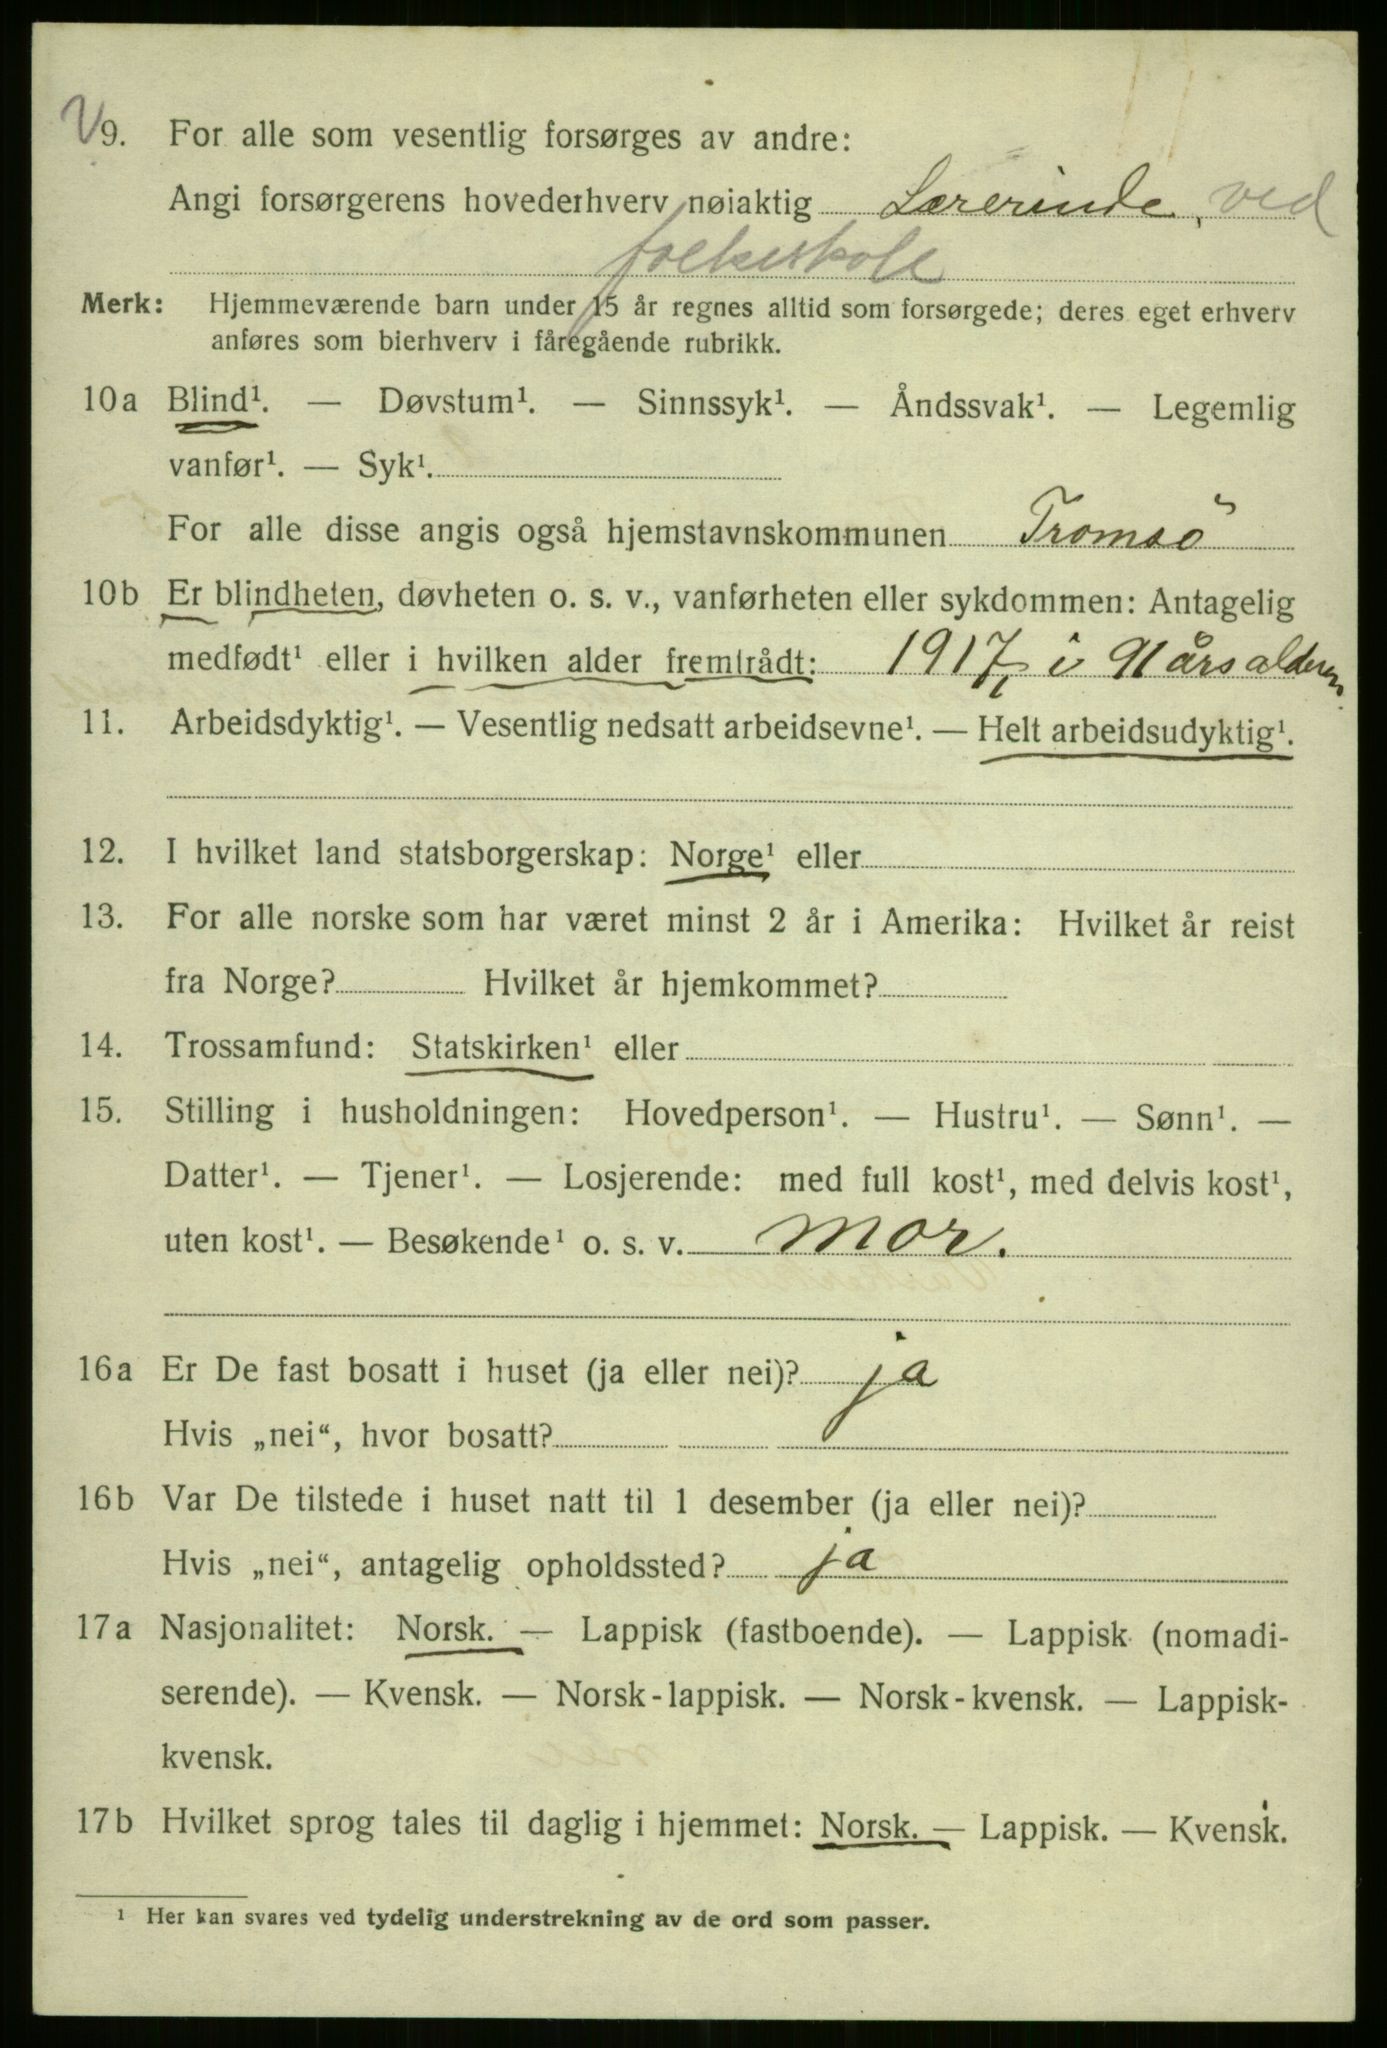 V 9. For alle som vesentlig forsørges av andre:
Angi forsørgerens hovederhverv nøiaktig Lærerinde, ved
folkeskole
Merk: Hjemmeværende barn under 15 år regnes alltid som forsørgede; deres eget erhverv
anføres som bierhverv i føregående rubrikk.
10a Blind¹. — Døvstum¹. — Sinnssyk¹. — Åndssvak¹. — Legemlig
vanfør¹. — Syk¹.
For alle disse angis også hjemstavnskommunen Tromsö
10b Er blindheten, døvheten o. s. v., vanførheten eller sykdommen: Antagelig
medfødt¹ eller i hvilken alder fremtrådt: 1917, i 91 års alderen
11. Arbeidsdyktig¹. — Vesentlig nedsatt arbeidsevne¹. — Helt arbeidsudyktig¹.
12. I hvilket land statsborgerskap: Norge¹ eller
13. For alle norske som har været minst 2 år i Amerika: Hvilket år reist
fra Norge? Hvilket år hjemkommet?
14. Trossamfund: Statskirken¹ eller
15. Stilling i husholdningen: Hovedperson¹. — Hustru¹. — Sønn¹. —
Datter¹. — Tjener¹. — Losjerende: med full kost¹, med delvis kost¹,
uten kost¹. — Besøkende¹ o. s. v. Mor.
16a Er De fast bosatt i huset (ja eller nei)? ja
Hvis „nei“, hvor bosatt?
16b Var De tilstede i huset natt til 1 desember (ja eller nei)?
Hvis „nei“, antagelig opholdssted? ja
17a Nasjonalitet: Norsk. — Lappisk (fastboende). — Lappisk (nomadi-
serende). — Kvensk. — Norsk-lappisk. — Norsk-kvensk. — Lappisk-
kvensk.
17b Hvilket sprog tales til daglig i hjemmet: Norsk. — Lappisk. — Kvensk.
¹ Her kan svares ved tydelig understrekning av de ord som passer.